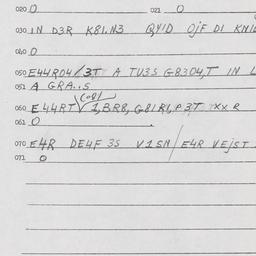 020 0 021 0
030 IN D3R K81.N3 QY1D OjF D1
040 0
050 E44R04/3T A TU3S G8304,T IN L
051 A GRA..S
(COD1)
060 E44RT 1,BR8, G81R1,P3T XX R
061 0
070 E4R DE4F 3S V1SN/E4R VEjST
071 0